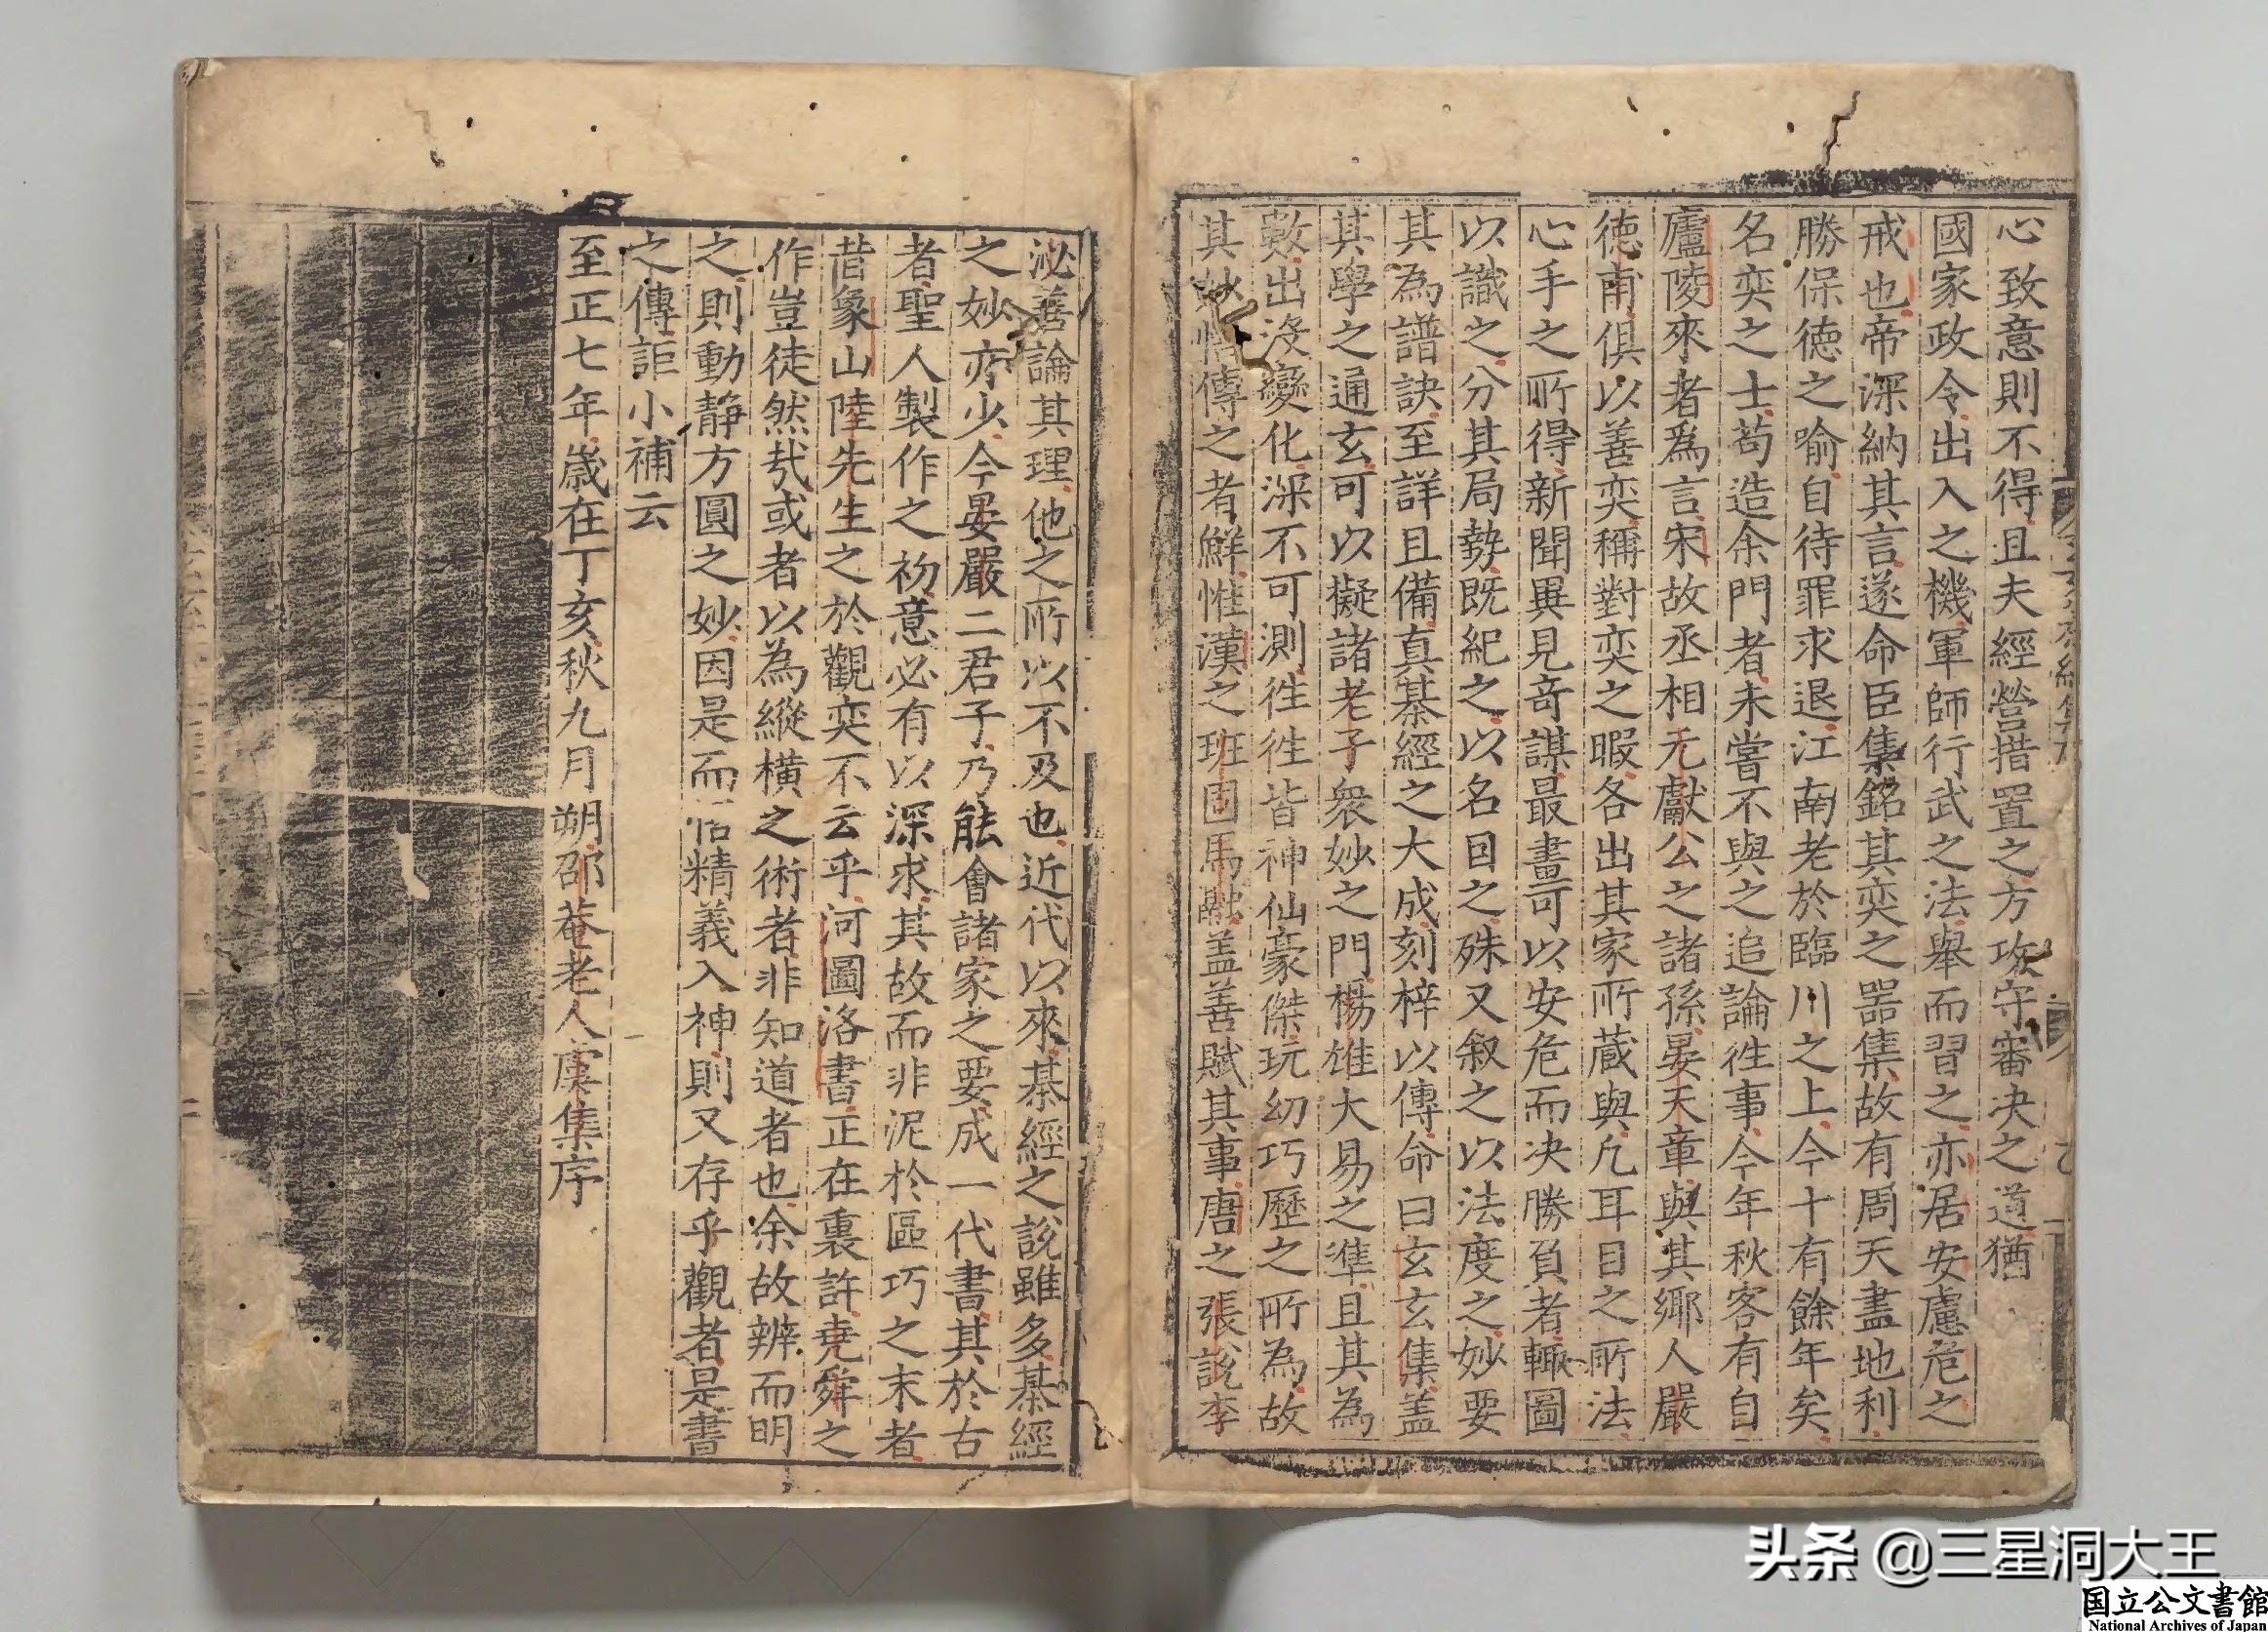 心致意則不得且夫經營措置之方攻守審决之道猶
國家政令出入之機軍師行武之法舉而習之亦居安慮危之
戒也帝深納其言遂命臣集銘其奕之噐集故有周天畫地利
勝保德之喻自待罪求退江南老於臨川之上今十有餘年矣
名奕之士茍造余門者未嘗不與之追論徃事今年秋客有自
廬陵來者爲言宋故丞相元獻公之諸孫晏天章與其鄉人嚴
德甫俱以善奕稱對奕之暇各出其家所藏與凢耳目之所法
心手之所得新聞異見竒謀最畫可以安危而决勝負者輙圖
以識之分其局勢既紀之以名目之殊又叙之以法度之妙要
其為譜訣至詳且備真棊經之大成刻梓以傳命曰玄玄集盖
其學之通玄可以擬諸老子衆妙之門楊雄大易之準且其為
數出沒變化深不可測徃徃皆神仙豪傑玩幻巧歷之所為故
其妙悟傳之者鮮惟漢之班固馬融盖善賦其事唐之張說李
泌善論其理他之所以不及也近代以來棊經之說雖多棊經
之妙亦少今晏嚴二君子乃能會諸家之要成一代書其於古
者聖人製作之初意必有以深求其故而非泥於區巧之末者
昔象山陸先生之於觀奕不云乎河圖洛書正在裏許堯舜之
作豈徒然㢤或者以為縱橫之術者非知道者也余故辨而明
之則動静方圓之妙因是而悟精義入神則又存乎觀者是書
之傳詎小補云
至正七年歲在丁亥秋九月朔邵菴老人虞集序
头条 @三星洞大王
国立公文書館
National Archives of Japan